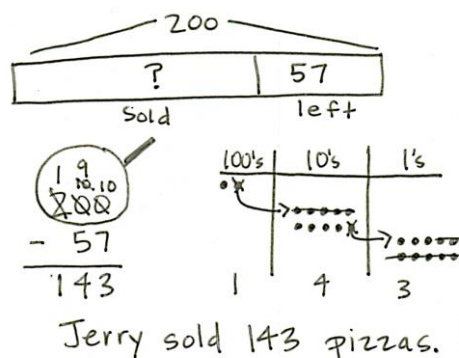 200
? 57
Sold left
1 9
10 10
200
- 57
143
100's 10's 1's
1 4 3
Jerry sold 143 pizzas.